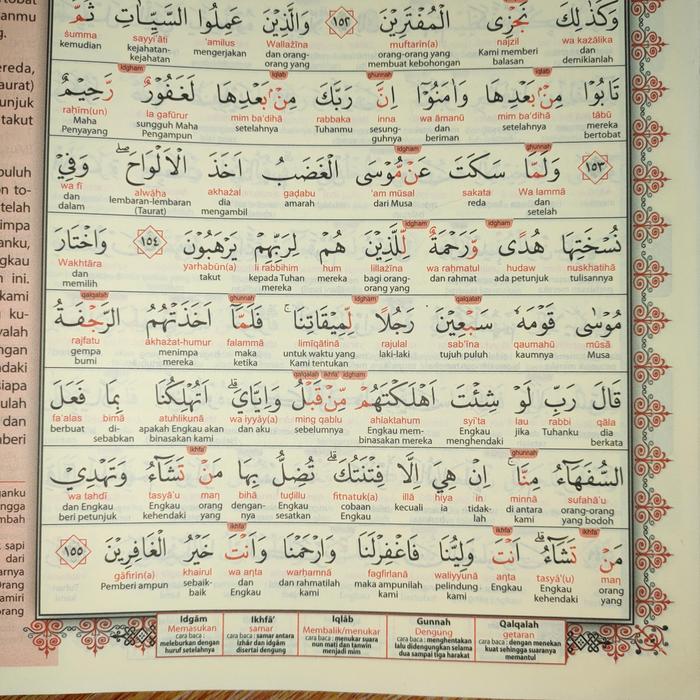 وَكَذٰلِكَ نَجْزِى الْمُفْتَرِيْنَ ١٥٢ وَالَّذِيْنَ عَمِلُوا السَّيِّاٰتِ ثُمَّ
wa każālika najzil muftarīn(a) Wallażīna 'amilus sayyi'āti ṡumma
dan demikianlah Kami memberi balasan orang-orang yang membuat kebohongan dan orang-orang yang mengerjakan kejahatan-kejahatan kemudian
تَابُوْا مِنْۢ بَعْدِهَا وَاٰمَنُوْٓا اِنَّ رَبَّكَ مِنْۢ بَعْدِهَا لَغَفُوْرٌ رَّحِيْمٌ
tābū mim ba'dihā wa āmanū inna rabbaka mim ba'dihā la gafūrur raḥīm(un)
mereka bertobat setelahnya dan beriman sesung-guhnya Tuhanmu setelahnya sungguh Maha Pengampun Maha Penyayang
١٥٣ وَلَمَّا سَكَتَ عَنْ مُّوْسَى الْغَضَبُ اَخَذَ الْاَلْوَاحَۖ وَفِيْ
Wa lammā sakata 'am mūsal gaḍabu akhażal alwāḥa wa fī
dan setelah reda dari Musa amarah dia mengambil lembaran-lembaran (Taurat) dan dalam
نُسْخَتِهَا هُدًى وَّرَحْمَةٌ لِّلَّذِيْنَ هُمْ لِرَبِّهِمْ يَرْهَبُوْنَ ١٥٤ وَاخْتَارَ
nuskhatihā hudaw wa raḥmatul lillażīna hum li rabbihim yarhabūn(a) Wakhtāra
tulisannya ada petunjuk dan rahmat bagi orang-orang yang mereka kepada Tuhan mereka takut dan memilih
مُوْسٰى قَوْمَهٗ سَبْعِيْنَ رَجُلًا لِّمِيْقَاتِنَاۚ فَلَمَّآ اَخَذَتْهُمُ الرَّجْفَةُ
mūsā qaumahū sab'īna rajulal limīqātinā falammā akhażat-humur rajfatu
Musa kaumnya tujuh puluh laki-laki untuk waktu yang Kami tentukan maka ketika menimpa mereka gempa bumi
قَالَ رَبِّ لَوْ شِئْتَ اَهْلَكْتَهُمْ مِّنْ قَبْلُ وَاِيَّايَۗ اَتُهْلِكُنَا بِمَا فَعَلَ
qāla rabbi lau syi'ta ahlaktahum ming qablu wa iyyāy(a) atuhlikunā bimā fa'alas
dia berkata Tuhanku jika Engkau menghendaki Engkau mem-binasakan mereka sebelumnya dan aku apakah Engkau akan binasakan kami di-sebabkan berbuat
السُّفَهَاۤءُ مِنَّاۚ اِنْ هِيَ اِلَّا فِتْنَتُكَۗ تُضِلُّ بِهَا مَنْ تَشَاۤءُ وَتَهْدِيْ
sufahā'u minnā in hiya illā fitnatuk(a) tuḍillu bihā man tasyā'u wa tahdī
orang-orang yang bodoh di antara kami tidak-lah ia kecuali cobaan Engkau Engkau sesatkan dengan-nya orang yang Engkau kehendaki dan Engkau beri petunjuk
مَنْ تَشَاۤءُۗ اَنْتَ وَلِيُّنَا فَاغْفِرْ لَنَا وَارْحَمْنَا وَاَنْتَ خَيْرُ الْغَافِرِيْنَ ١٥٥
man tasyā'(u) anta waliyyunā fagfirlanā warḥamnā wa anta khairul gāfirīn(a)
orang yang Engkau kehendaki Engkau pelindung kami maka ampunilah kami dan rahmatilah kami dan Engkau sebaik-baik Pemberi ampun
Idgām Ikhfā' Iqlāb Gunnah Qalqalah
Memasukan samar Membalik/menukar Dengung getaran
cara baca : meleburkan dengan huruf setelahnya
cara baca : samar antara izhār dan idgām disertai dengung
cara baca : menukar suara nun mati dan tanwin menjadi mim
cara baca : menghentakan lalu didengungkan selama dua sampai tiga harakat
cara baca : dengan menekan kuat sehingga suaranya memantul